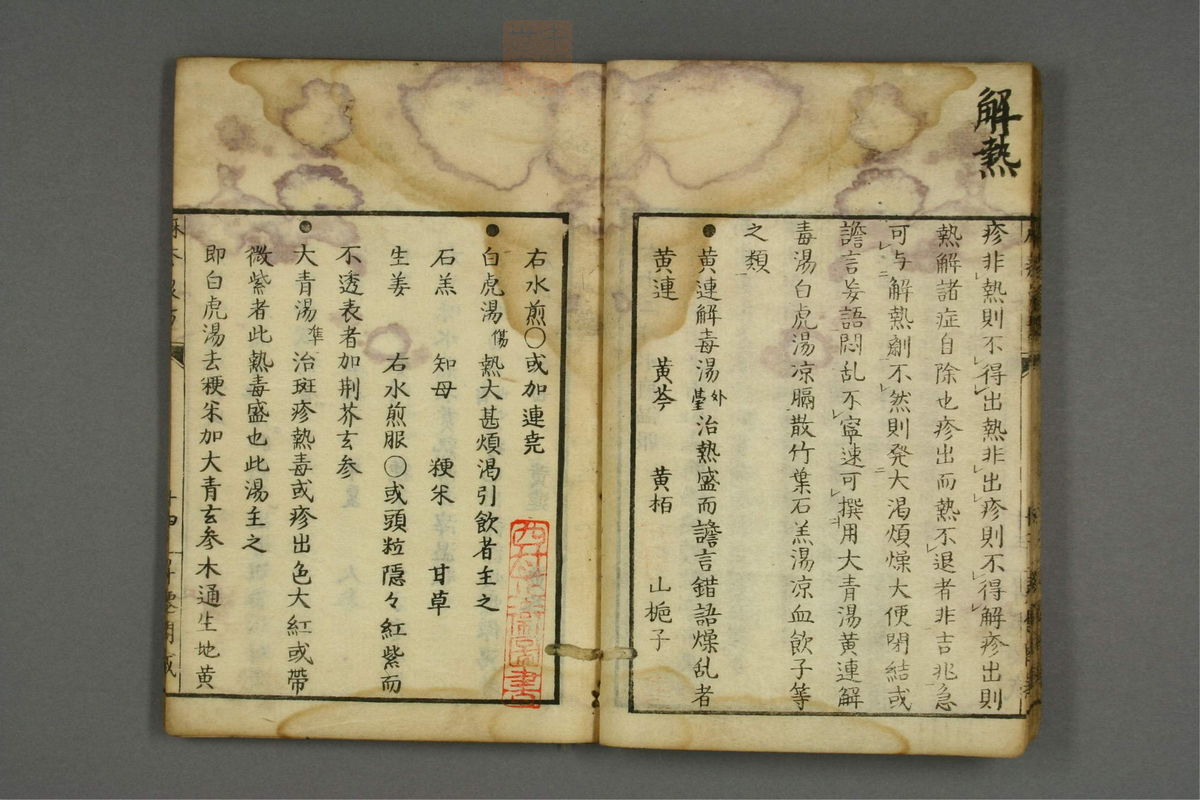 解熱
疹非熱則不得出熱非出疹則不得解疹出則
熱解諸症自除也疹出而熱不退者非吉兆急
可与解熱劑不然則発大渇煩燥大便閉結或
譫言妄語悶乱不寧速可撰用大青湯黄連解
毒湯白虎湯凉膈散竹葉石羔湯凉血飲子等
之類
●黄連解毒湯外臺治熱盛而譫言錯語燥乱者
黄連 黄芩 黄栢 山梔子
右水煎○或加連尭
●白虎湯傷熱大甚煩渇引飲者主之
石羔 知母 粳米 甘草
生姜 右水煎服○或頭粒隠々紅紫而
不透表者加荆芥玄参
●大青湯準治斑疹熱毒或疹出色大紅或帶
微紫者此熱毒盛也此湯主之
即白虎湯去粳米加大青玄参木通生地黄